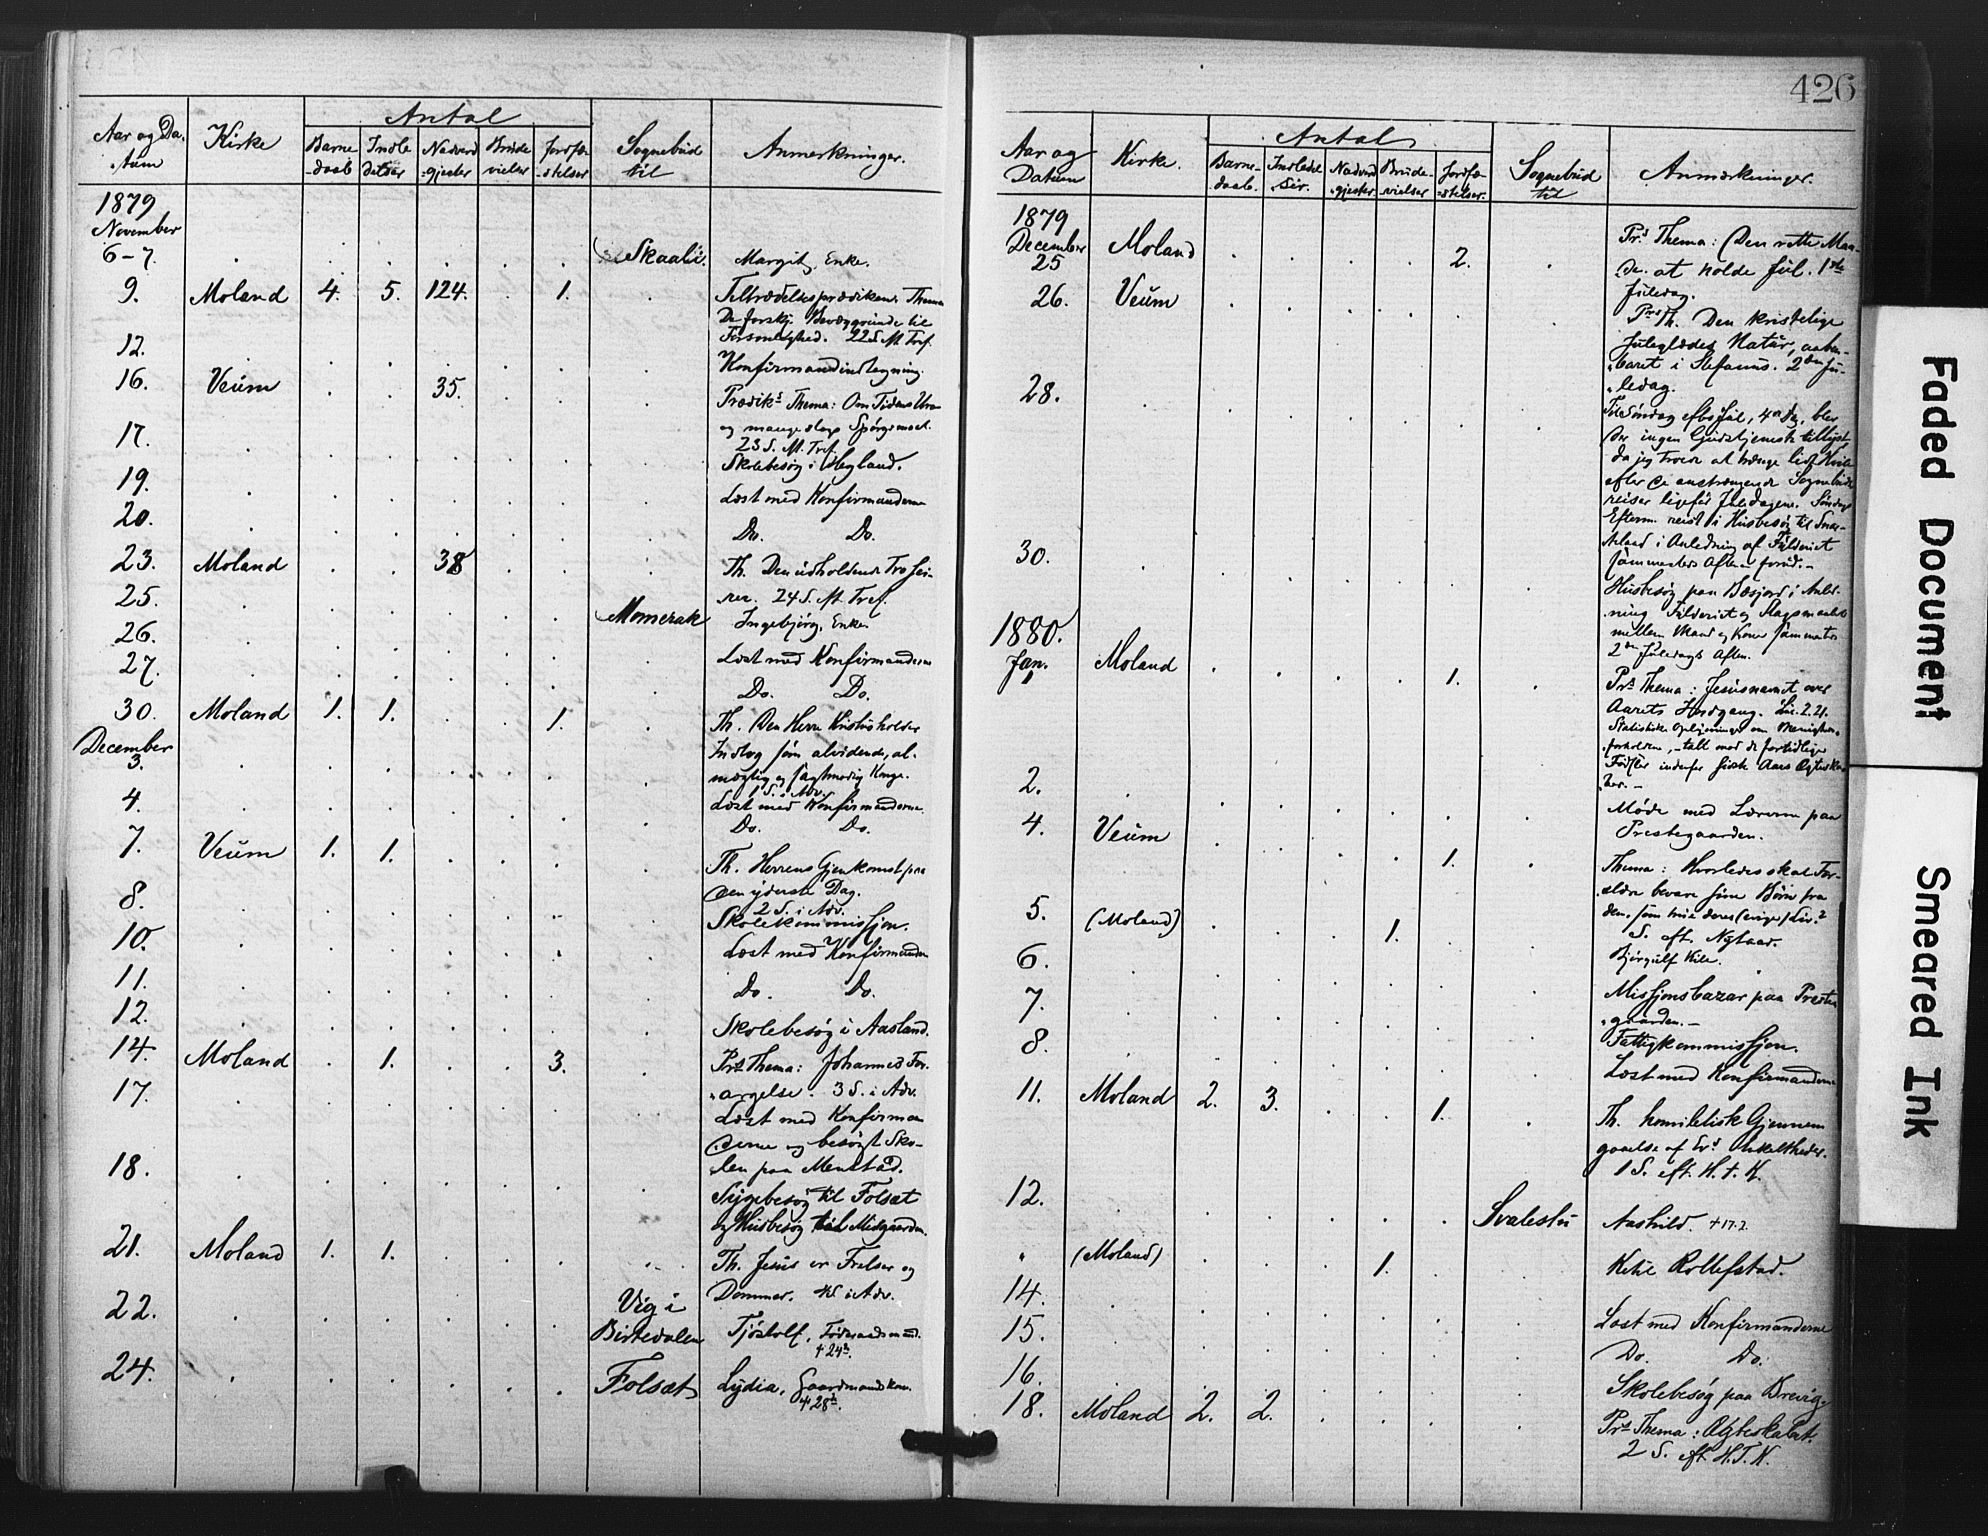 Aar og Da-
tum
Kirke
Antal
Barne
-daab
Indle
delser
Nadverd
-gjester
Brude
vielser
Jordfæ-
stelser
Sognebud
til
Anmerkninger.
1879
November
6-7. Skaali. Margit, Enke.
9. Moland 4. 5. 124. 1. Tiltrædelsesprædiken. Thema
De forskj. Bevæggrunde til
Forsonlighed. 22 S. M. Tref.
12. Konfirmandindtegning.
16. Veum 35. Prædiks Thema: Om Tidens
og mange slags Spörgsmaal.
23 S. M. Tref.
17. Skolebesøg i Hegland.
19. Læst med Konfirmanderne
20. Do. Do.
23. Moland 38 Th. Den udholdende Tro sei-
rer. 24 S. M. Tref.
25. Momerak Ingebjörg, Enke.
26. Læst med Konfirmanderne
27. Do. Do.
30. Moland 1. 1. 1. Th. Den Herre Kristus holder
Indtog som alvidende, al-
mægtig og sagtmodig Konge.
1 S. i Adv.
December
3. Læst med Konfirmanderne.
4. Do. Do.
7. Veum 1. 1. Th. Herrens Gjenkomst paa
den yderste Dag.
2 S. i Adv.
8. Skolekommission.
10. Læst med Konfirmanderne
11. Do. Do.
12. Skolebesøg i Aasland.
14. Moland 1. 3. Prs Thema: Johannes For-
argelse. 3 S. i Adv.
17. Læst med Konfirman
derne og besøgt Sko-
len paa Menstad.
18. Sygebesøg til Folsæt
og Husbesøg til Midgaarden.
21. Moland 1. 1. Th. Jesus er Frelser og
Dommer. 4 S. i Adv.
22. Vig i
Birtedalen Tjöstolf, Föderaadsmand.
† 24de.
24. Folsæt Lydia, Gaardmandskone.
† 28de.
426
Aar og
Datum
Kirke.
Antal
Barne-
daab.
Indledel
ser.
Nadverd
gjester
Brude-
vielser
Jordfæ-
stelser.
Sognebud
til
Anmærkninger.
1879
December
25 Moland 2. Prs Thema: Den rette Maa-
de at holde Jul. 1ste
Juledag.
26. Veum Prs Th. Den kristelige
Juleglædes Natur, aaben-
baret i Stefanus. 2den Ju-
ledag.
28. Søndag efter Jul, 4de Dag, blev
der ingen Gudstjeneste tillyst
da jeg troede at trænge lidt Hvile
efter de anstrængende Sognebuds
reiser ligeför Juledagene. Søndags
Efterm. reist i Husbesøg til
i Anledning af Fylderiet
sammesteds Aften forud.-
30. Husbesøg paa i Anled-
ning Fylderiet og Slagsmaalet
mellem Mand og Kone sammesteds
2den Juledags Aften.
1880.
Jan.
1 Moland 1. Prs Thema: Jesusnavnet over
Aarets Indgang. Luc. 2. 21.
Statistiske Oplysninger om Menigheds-
forholdene, - talt mod de fortidlige
Födsler indenfor sidste Aars Ægteska-
ber. -
2. Møde med Lærerne paa
Prestegaarden.
4. Veum 1. Thema: Hvorledes skal For-
ældre bevare sine Børn fra
dem, som true deres (evige) Liv?
S. eft. Nytaar.
5. (Moland) 1. Bjørgulf Kile.
6. Missionsbazar paa Preste
gaarden.-
7. Fattigkommission.
8. Læst med Konfirmanderne
11. Moland 2. 3. 1. Th. homiletisk Gjennem
gaaelse af Evs Enkeltheder.
1 S. eft. H. t. K.
12. Svalestu Aashild. † 17.2.
" (Moland) 1. Ketil Rollefstad.
14. Læst med Konfirmanderne
15. Do. Do.
16. Skolebesøg paa Brevig.
18. Moland 2. 2. Prs Thema: Ægteskabet.
2 S. eft. H. T. K.
Faded Document
Smeared Ink